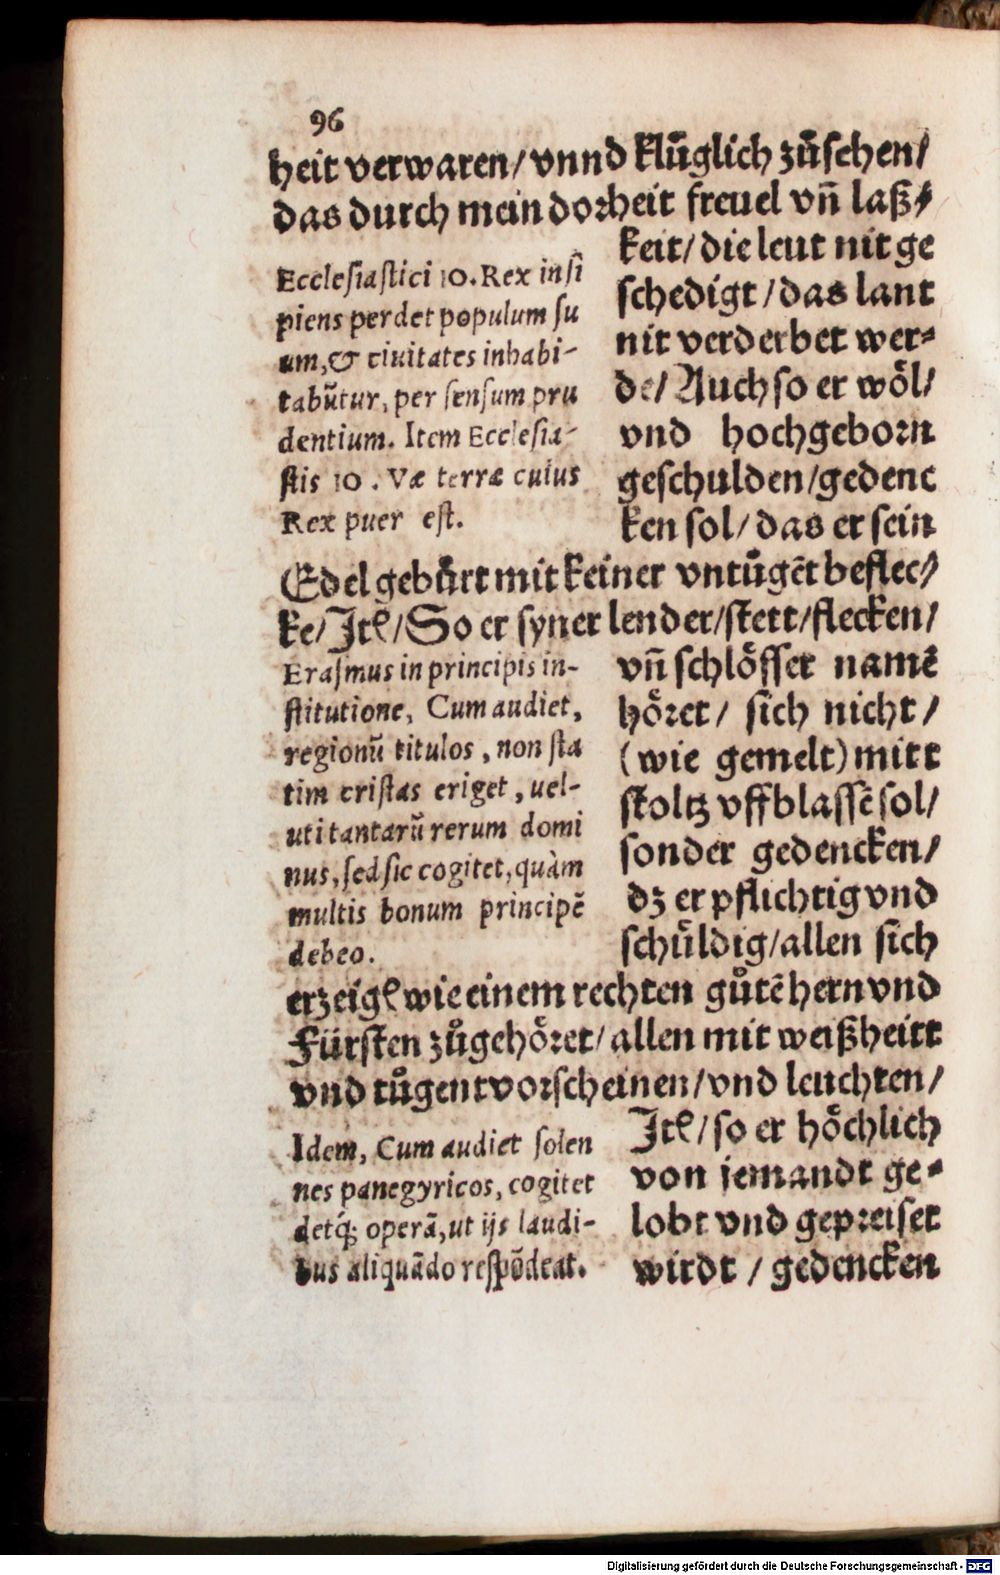 96
heit verwaren/ vnnd klůglich zůsehen/
das durch mein dorheit freuel vñ laß⸗
keit/ die leut nit ge
schedigt / das lant
nit verderbet wer⸗
de/ Auch so er wöl/
vnd hochgeborn
geschulden/gedenc
ken sol/ das er sein
Ecclesiastici 10. Rex insi
piens perdet populum su
um, & ciuitates inhabi-
tabūtur, per sensum pru
dentium. Item Ecclesia-
stis 10. Væ terræ cuius
Rex puer est.
Edel gebůrt mit keiner vntůgēt beflec⸗
ke/ Itē/ So er syner lender/stett/flecken/
vñ schlösser namē
höret/ sich nicht/
(wie gemelt) mitt
stoltz vffblassē sol/
sonder gedencken/
dz er pflichtig vnd
schůldig/allen sich
Erasmus in principis in-
stitutione, Cum audiet,
regionū titulos, non sta
tim cristas eriget, uel-
uti tantarū rerum domi
nus, sed sic cogitet, quàm
multis bonum principē
debeo.
erzeigē wie einem rechten gůtē hern vnd
Fürsten zůgehöret/ allen mit weißheitt
vnd tůgent vorscheinen/vnd leuchten/
Itē/ so er höchlich
von iemandt ge⸗
lobt vnd gepreiset
wirdt / gedencken
Idem, Cum audiet solen
nes panegyricos, cogitet
detq́; operā, ut ijs laudi-
bus aliquādo respōdeat.
Digitalisierung gefördert durch die Deutsche Forschungsgemeinschaft - DFG